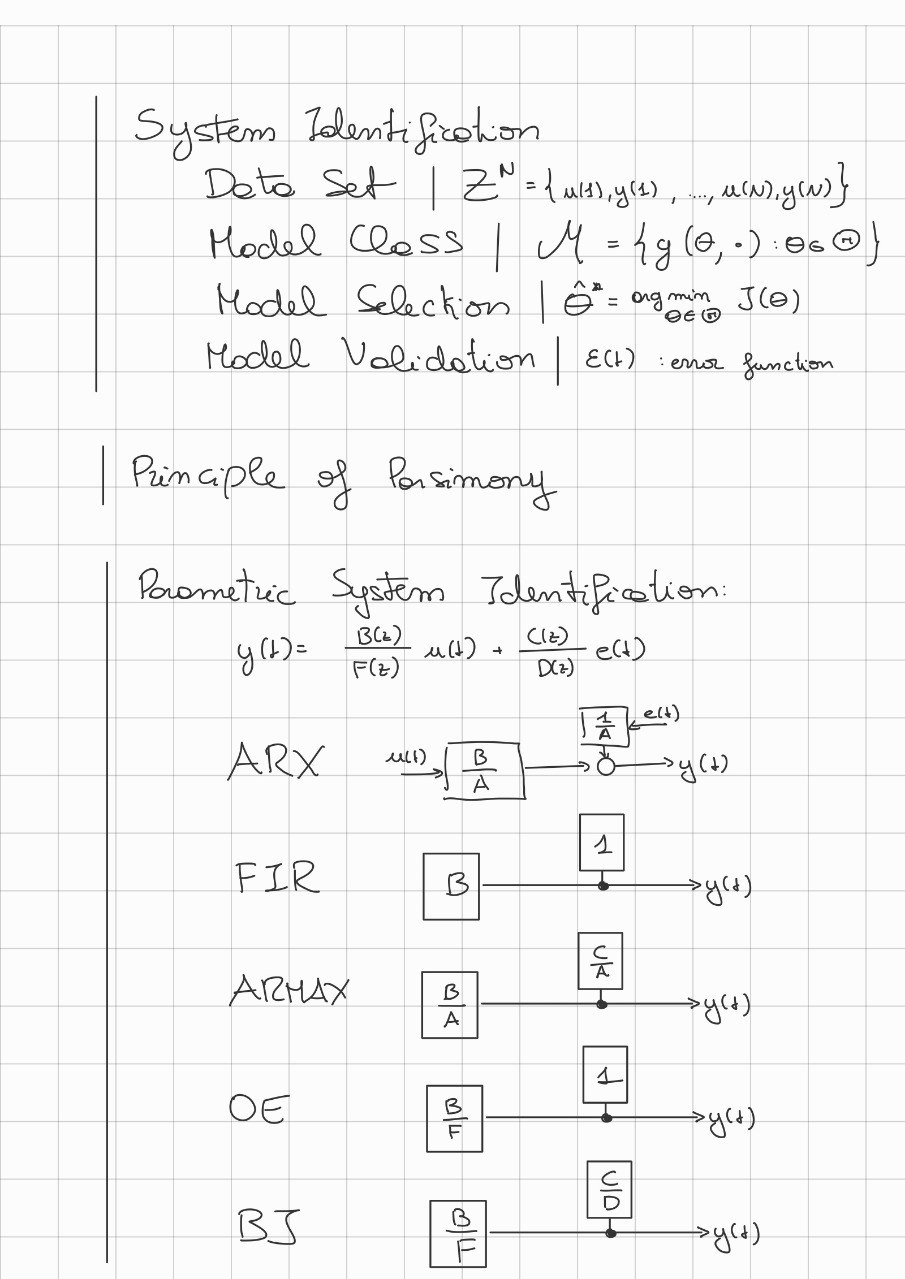 System Identification
Data Set | Z^N = {u(1), y(1), ..., u(N), y(N)}
Model Class | M = {g(θ, ·) : θ ∈ Θ}
Model Selection | θ̂* = arg min_{θ∈Θ} J(θ)
Model Validation | ε(t) : error function
Principle of Parsimony
Parametric System Identification:
y(t) = B(z)/F(z) u(t) + C(z)/D(z) e(t)
ARX u(t) B/A 1/A e(t) y(t)
FIR B 1 y(t)
ARMAX B/A C/A y(t)
OE B/F 1 y(t)
BJ B/F C/D y(t)